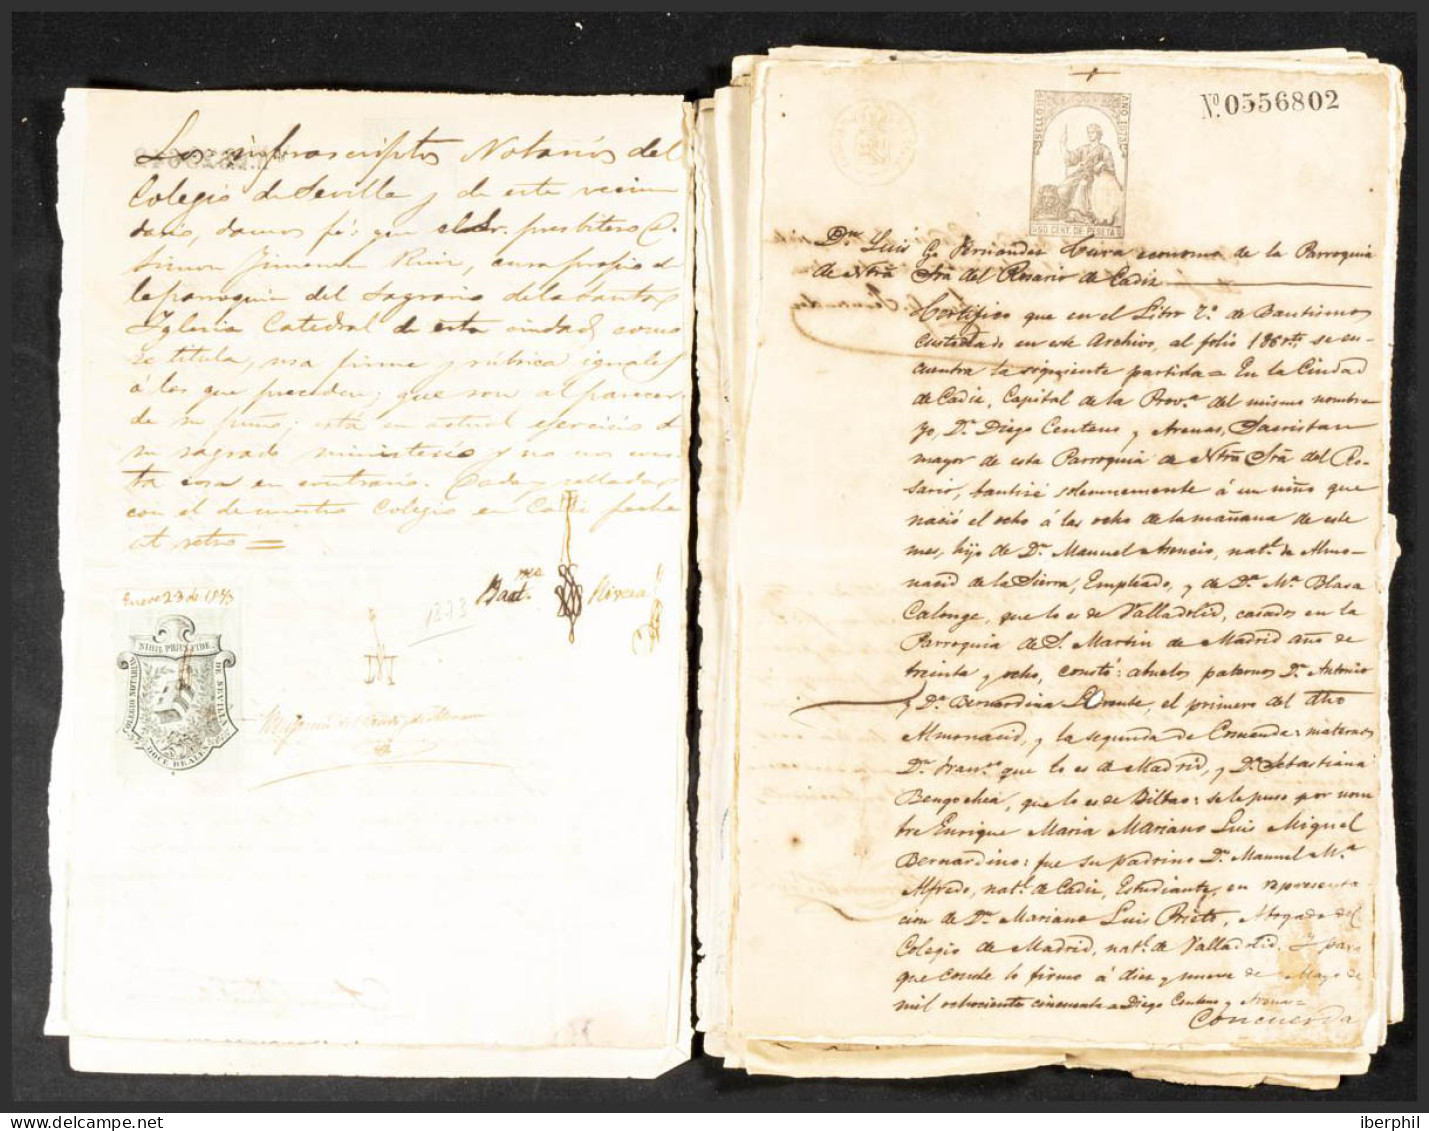 Los infrascriptos Notarios del
Colegio de Sevilla y de este vecin
dario, damos fé: que el Sr. presbitero D.
Simon Jimenez Ruiz, cura propio de
la parroquia del Sagrario de la Santa
Iglesia Catedral de esta ciudad, como
se titula, usa firma y rúbrica iguales
á las que preceden; que son al parecer
de su puño; está en actual ejercicio de
su sagrado ministerio y no nos cons
ta cosa en contrario. Dada y sellada
con el de nuestro Colegio en Cadiz fecha
at retro =
Enero 23 de 1873
NIHIL PRIUS FIDE
COLEGIO NOTARIAL
DE SEVILLA
DOCE REALES
Bart.me Rivera
1873
Nº 0556802
SELLO 11º
AÑO 1873
50 CENT. DE PESETA
Dn. Luis G. Fernandez Cura economo de la Parroquia
de Ntrâ Srâ del Rosario de Cadiz.
Certifico que en el Libro 7º de Bautismos
custodiado en este Archivo, al folio 186 vtº, se en-
cuentra la siguiente partida = En la Ciudad
de Cadiz, Capital de la Provª del mismo nombre
Yo, Dn. Diego Centeno y Arenas, Sacristan
mayor de esta Parroquia de Ntrâ Srâ del Ro-
sario, bautizé solemnemente á un niño que
nació el ocho á las ocho de la mañana de este
mes, hijo de Dn. Manuel Asencio, natl. de Almo-
nacid de la Sierra, Empleado, y de Dª Mª Blasa
Calonge, que lo es de Valladolid, casados en la
Parroquia de S. Martin de Madrid año de
treinta y ocho, constó: abuelos paternos Dn. Antonio
y Dª Bernardina Llorente, el primero del dho
Almonacid, y la segunda de Comenda: maternos
Dn. Franco que lo es de Madrid, y Dª Sebastiana
Bengochea, que lo es de Bilbao: se le puso por nom
bre Enrique Maria Mariano Luis Miguel
Bernardino: fue su padrino Dn. Manuel Mª
Alfredo, natl. de Cadiz, Estudiante, en representa-
cion de Dn. Mariano Luis Prieto, Abogado del
Colegio de Madrid, natl. de Valladolid. Y para
que conste lo firmo á diez y nueve de Mayo de
mil ochociento cincuenta = Diego Centeno y Arenas =
Concuerda
iberphil